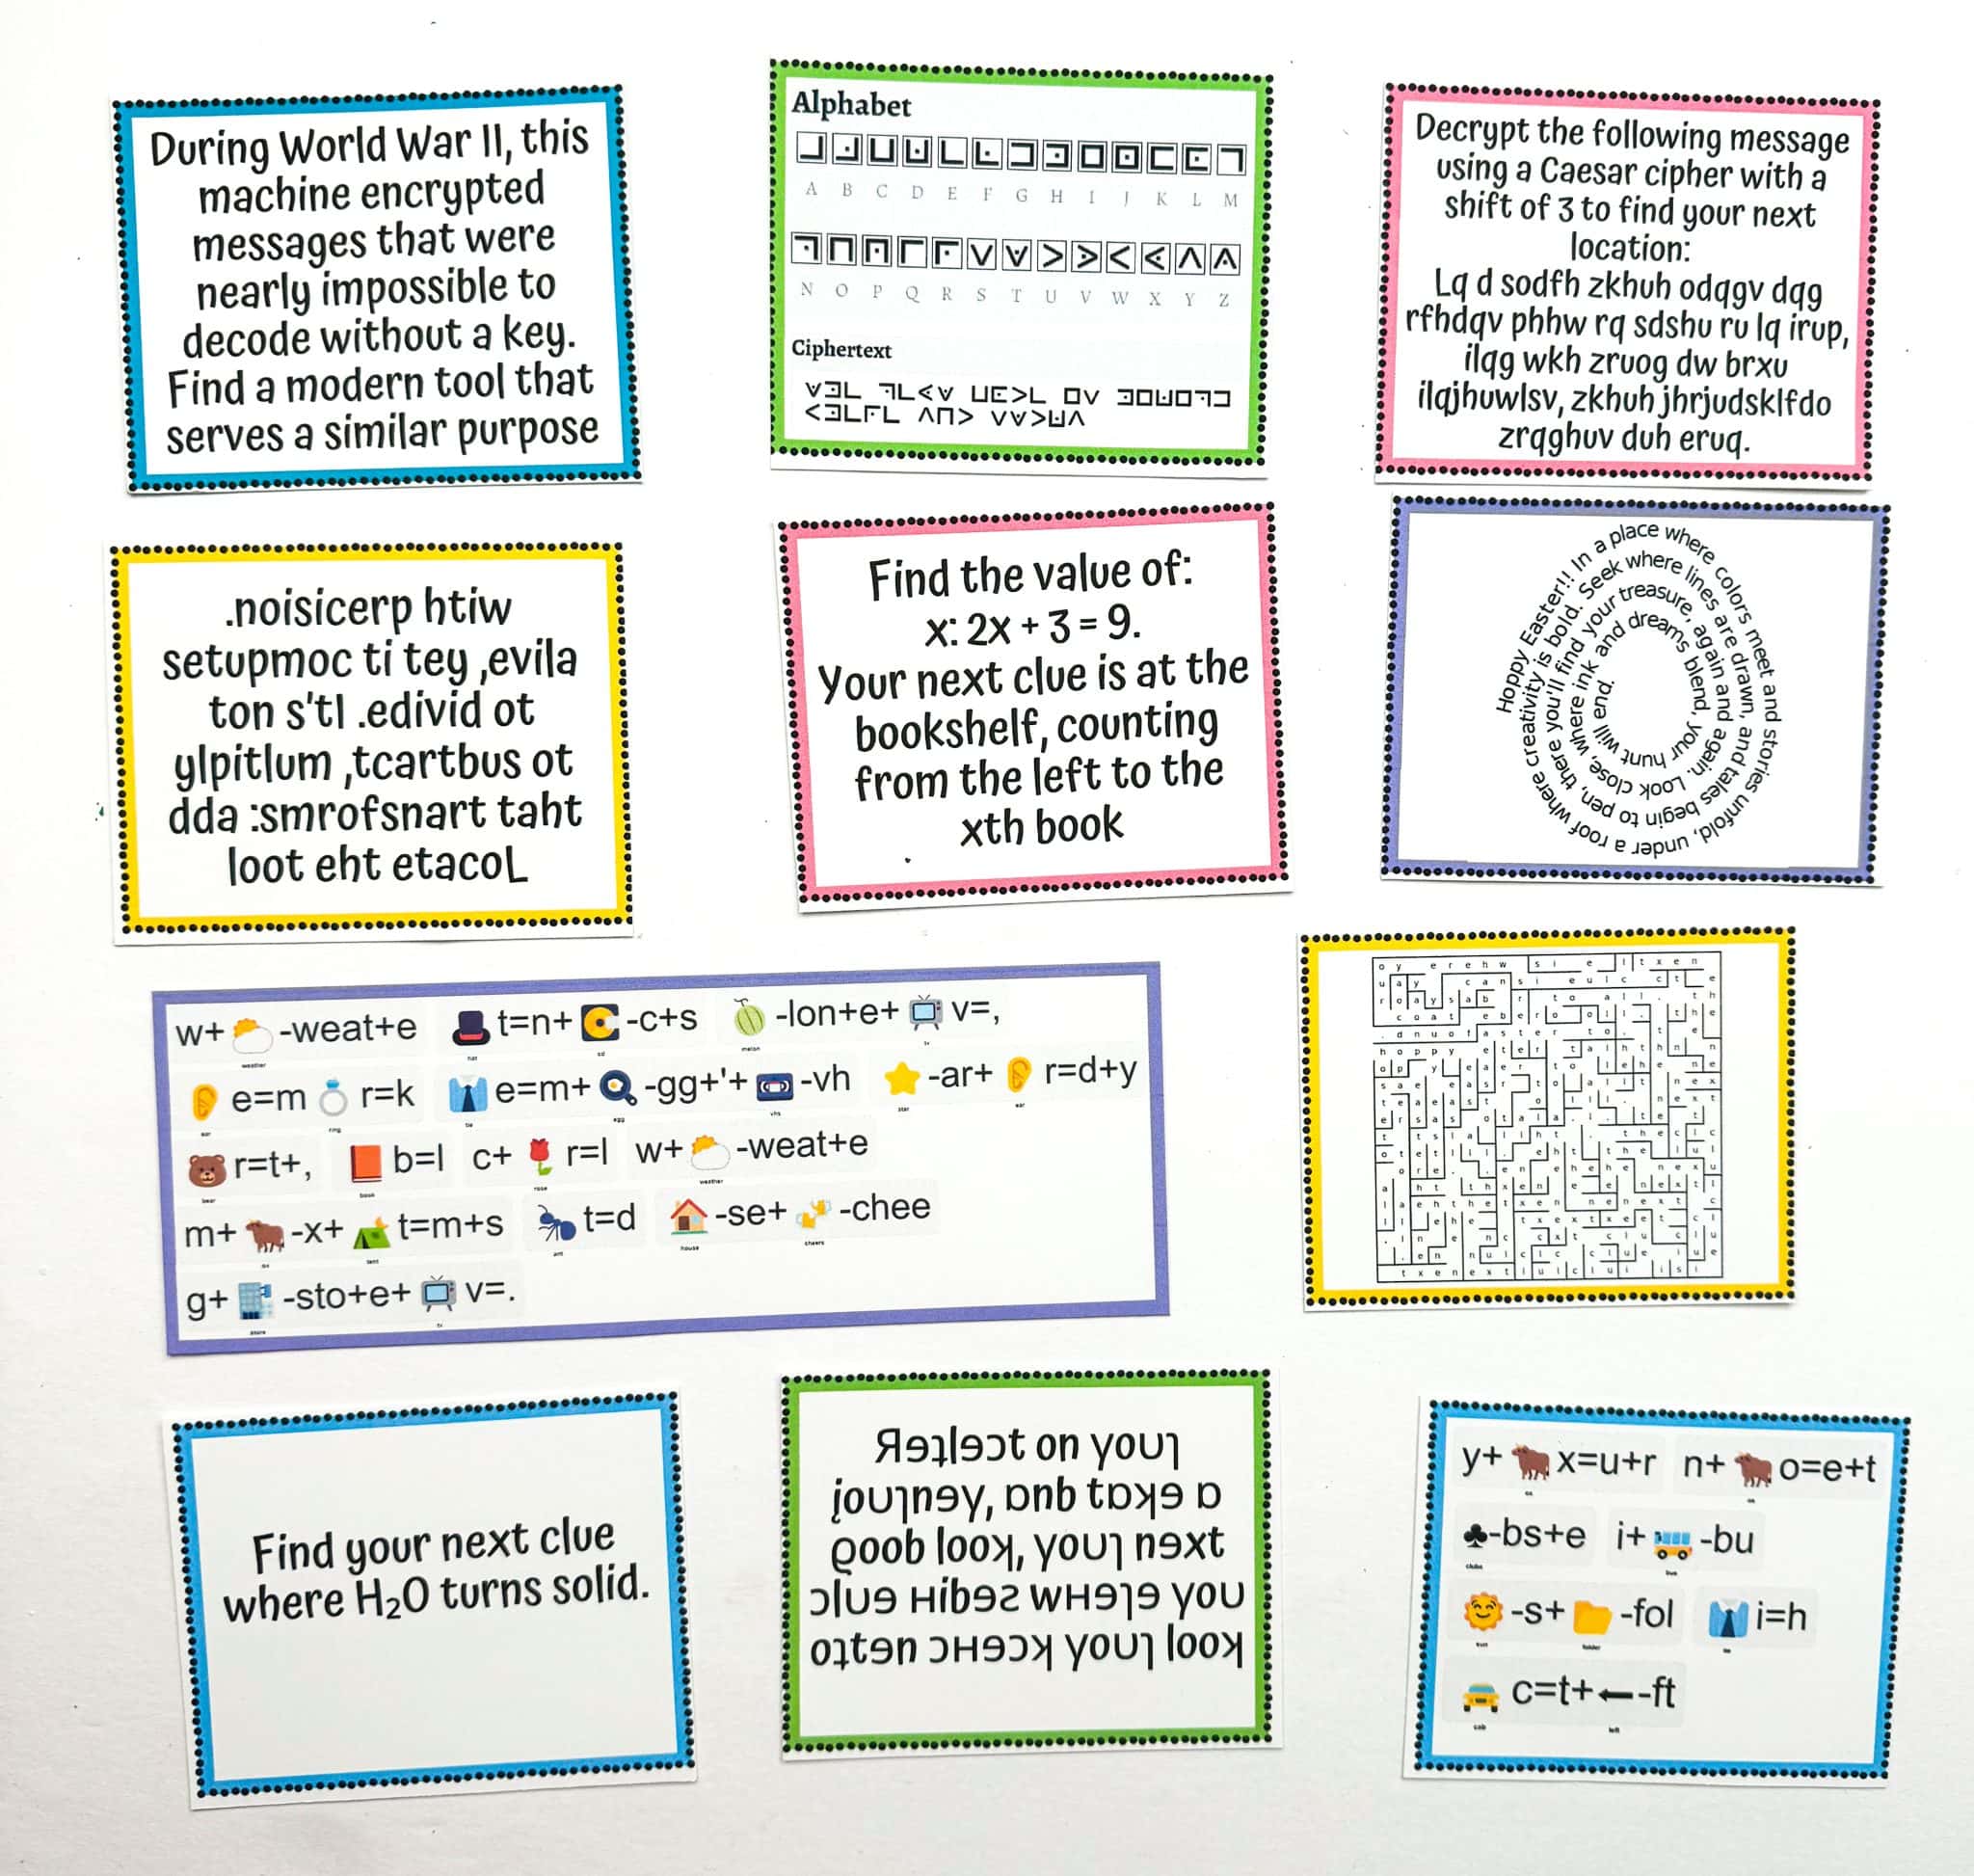 During World War II, this
machine encrypted
messages that were
nearly impossible to
decode without a key.
Find a modern tool that
serves a similar purpose
Alphabet
A B C D E F G H I J K L M
N O P Q R S T U V W X Y Z
Ciphertext
Decrypt the following message
using a Caesar cipher with a
shift of 3 to find your next
location:
Lq d sodfh zkhuh odqgv dqg
rfhdqv phhw rq sdshu ru lq irup,
ilqg wkh zruog dw brxu
ilqjhuwlsv, zkhuh jhrjudsklfdo
zrqghuv duh eruq.
.noisicerp htiw
setupmoc ti tey ,evila
ton s'tI .edivid ot
ylpitlum ,tcartbus ot
dda :smrofsnart taht
loot eht etacoL
Find the value of:
x: 2x + 3 = 9.
Your next clue is at the
bookshelf, counting
from the left to the
xth book
Hoppy Easter!! In a place where colors meet and stories unfold, under a roof where creativity is bold. Seek where lines are drawn, and tales begin to pen, there you'll find your treasure, again and again. Look close, where ink and dreams blend, your hunt will end.
w+ -weat+e t=n+ -c+s -lon+e+ v=,
weather hat cd melon tv
e=m r=k e=m+ -gg+'+ -vh -ar+ r=d+y
ear ring tie egg vhs star ear
r=t+, b=l c+ r=l w+ -weat+e
bear book rose weather
m+ -x+ t=m+s t=d -se+ -chee
ox tent ant house cheers
g+ -sto+e+ v=.
store tv
Find your next clue
where H₂O turns solid.
Reflect on your
journey, and take a
good look, your next
clue hides where you
often check your look
y+ x=u+r n+ o=e+t
ox ox
-bs+e i+ -bu
clubs bus
-s+ -fol i=h
sun folder tie
c=t+ -ft
cab left